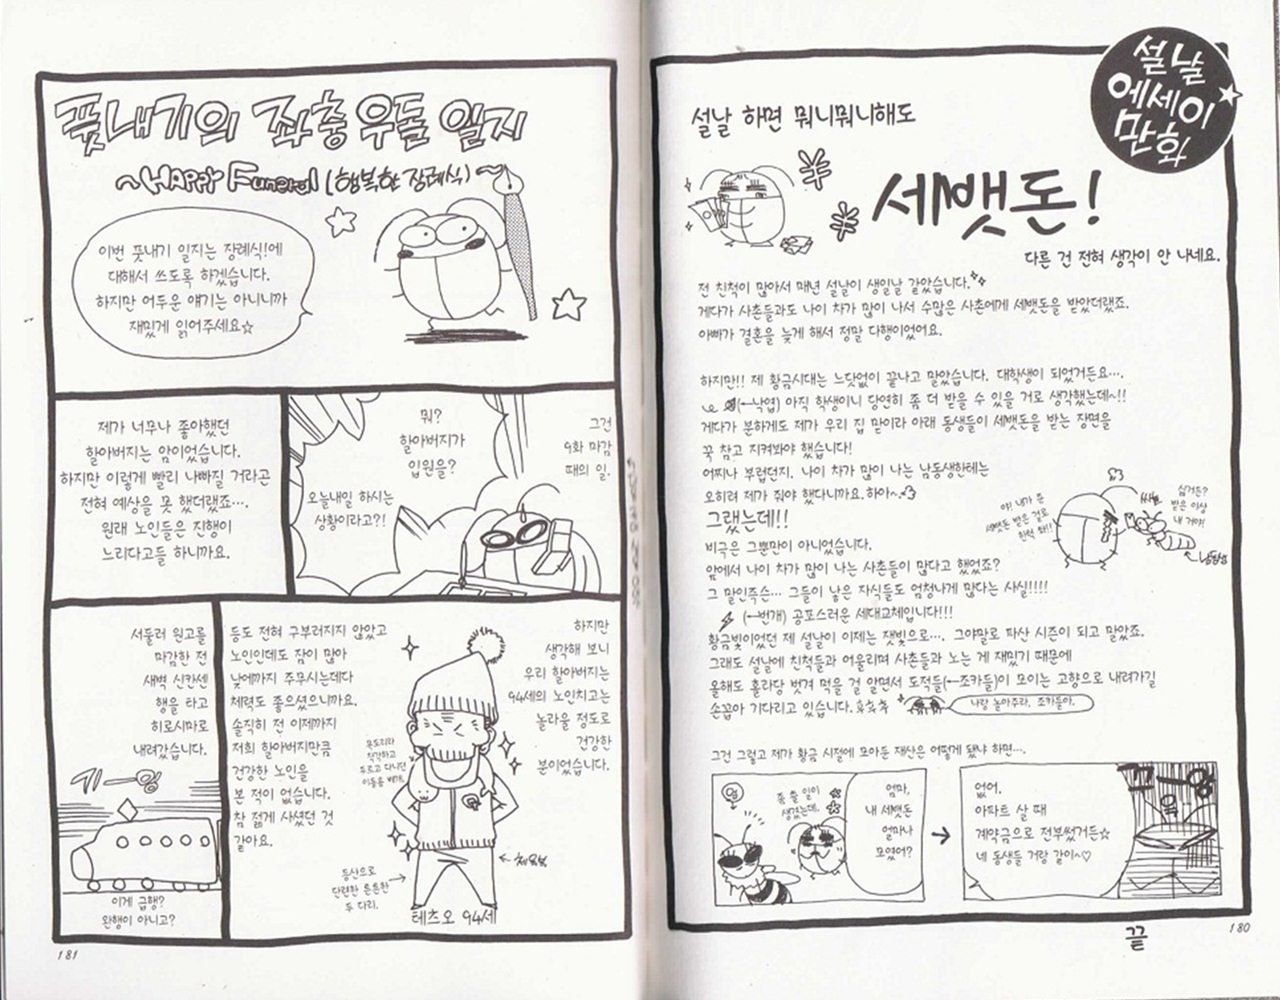 설날
에세이
만화
설날 하면 뭐니뭐니해도
세뱃돈!
다른 건 전혀 생각이 안 나네요.
전 친척이 많아서 매년 설날이 생일날 같았습니다.
게다가 사촌들과도 나이 차가 많이 나서 수많은 사촌에게 세뱃돈을 받았더랬죠.
아빠가 결혼을 늦게 해서 정말 다행이었어요.
하지만!! 제 황금시대는 느닷없이 끝나고 말았습니다. 대학생이 되었거든요….
(←낙엽) 아직 학생이니 당연히 좀 더 받을 수 있을 거로 생각했는데~!!
게다가 분하게도 제가 우리 집 맏이라 아래 동생들이 세뱃돈을 받는 장면을
꾹 참고 지켜봐야 했습니다!
어찌나 부럽던지. 나이 차가 많이 나는 남동생한테는
오히려 제가 줘야 했다니까요. 하아~
그랬는데!!
비극은 그뿐만이 아니었습니다.
앞에서 나이 차가 많이 나는 사촌들이 많다고 했었죠?
그 말인즉슨… 그들이 낳은 자식들도 엄청나게 많다는 사실!!!!
(←번개) 공포스러운 세대교체입니다!!!
황금빛이었던 제 설날이 이제는 잿빛으로…. 그야말로 파산 시즌이 되고 말았죠.
그래도 설날에 친척들과 어울리며 사촌들과 노는 게 재밌기 때문에
올해도 홀라당 벗겨 먹을 걸 알면서 도적들(←조카들)이 모이는 고향으로 내려가길
손꼽아 기다리고 있습니다.
나랑 놀아주라, 조카들아.
야! 내가 준
세뱃돈 받은 걸로
한턱 쏴!!
싫거든?
받은 이상
내 거야!
남동생
그건 그렇고 제가 황금 시절에 모아둔 재산은 어떻게 됐냐 하면….
엄마,
내 세뱃돈
얼마나
모였어?
좀 쓸 일이
생겼는데.
엄
없어.
아파트 살 때
계약금으로 전부썼거든☆
네 동생들 거랑 같이~♡
끝
180
풋내기의 좌충우돌 일지
~HAPPY Funeral (행복한 장례식)~
이번 풋내기 일지는 장례식!에
대해서 쓰도록 하겠습니다.
하지만 어두운 얘기는 아니니까
재밌게 읽어주세요☆
그건
9화 마감
때의 일.
뭐?
할아버지가
입원을?
오늘내일 하시는
상황이라고?!
제가 너무나 좋아했던
할아버지는 암이었습니다.
하지만 이렇게 빨리 나빠질 거라곤
전혀 예상을 못 했더랬죠….
원래 노인들은 진행이
느리다고들 하니까요.
하지만
생각해 보니
우리 할아버지는
94세의 노인치고는
놀라울 정도로
건강한
분이었습니다.
등도 전혀 구부러지지 않았고
노인인데도 잠이 많아
낮에까지 주무시는데다
체력도 좋으셨으니까요.
솔직히 전 이제까지
저희 할아버지만큼
건강한 노인을
본 적이 없습니다.
참 젊게 사셨던 것
같아요.
등산으로
단련한 튼튼한
두 다리.
체육복
테츠오 94세
서둘러 원고를
마감한 전
새벽 신칸센
행을 타고
히로시마로
내려갔습니다.
기―잉
이게 급행?
완행이 아니고?
181